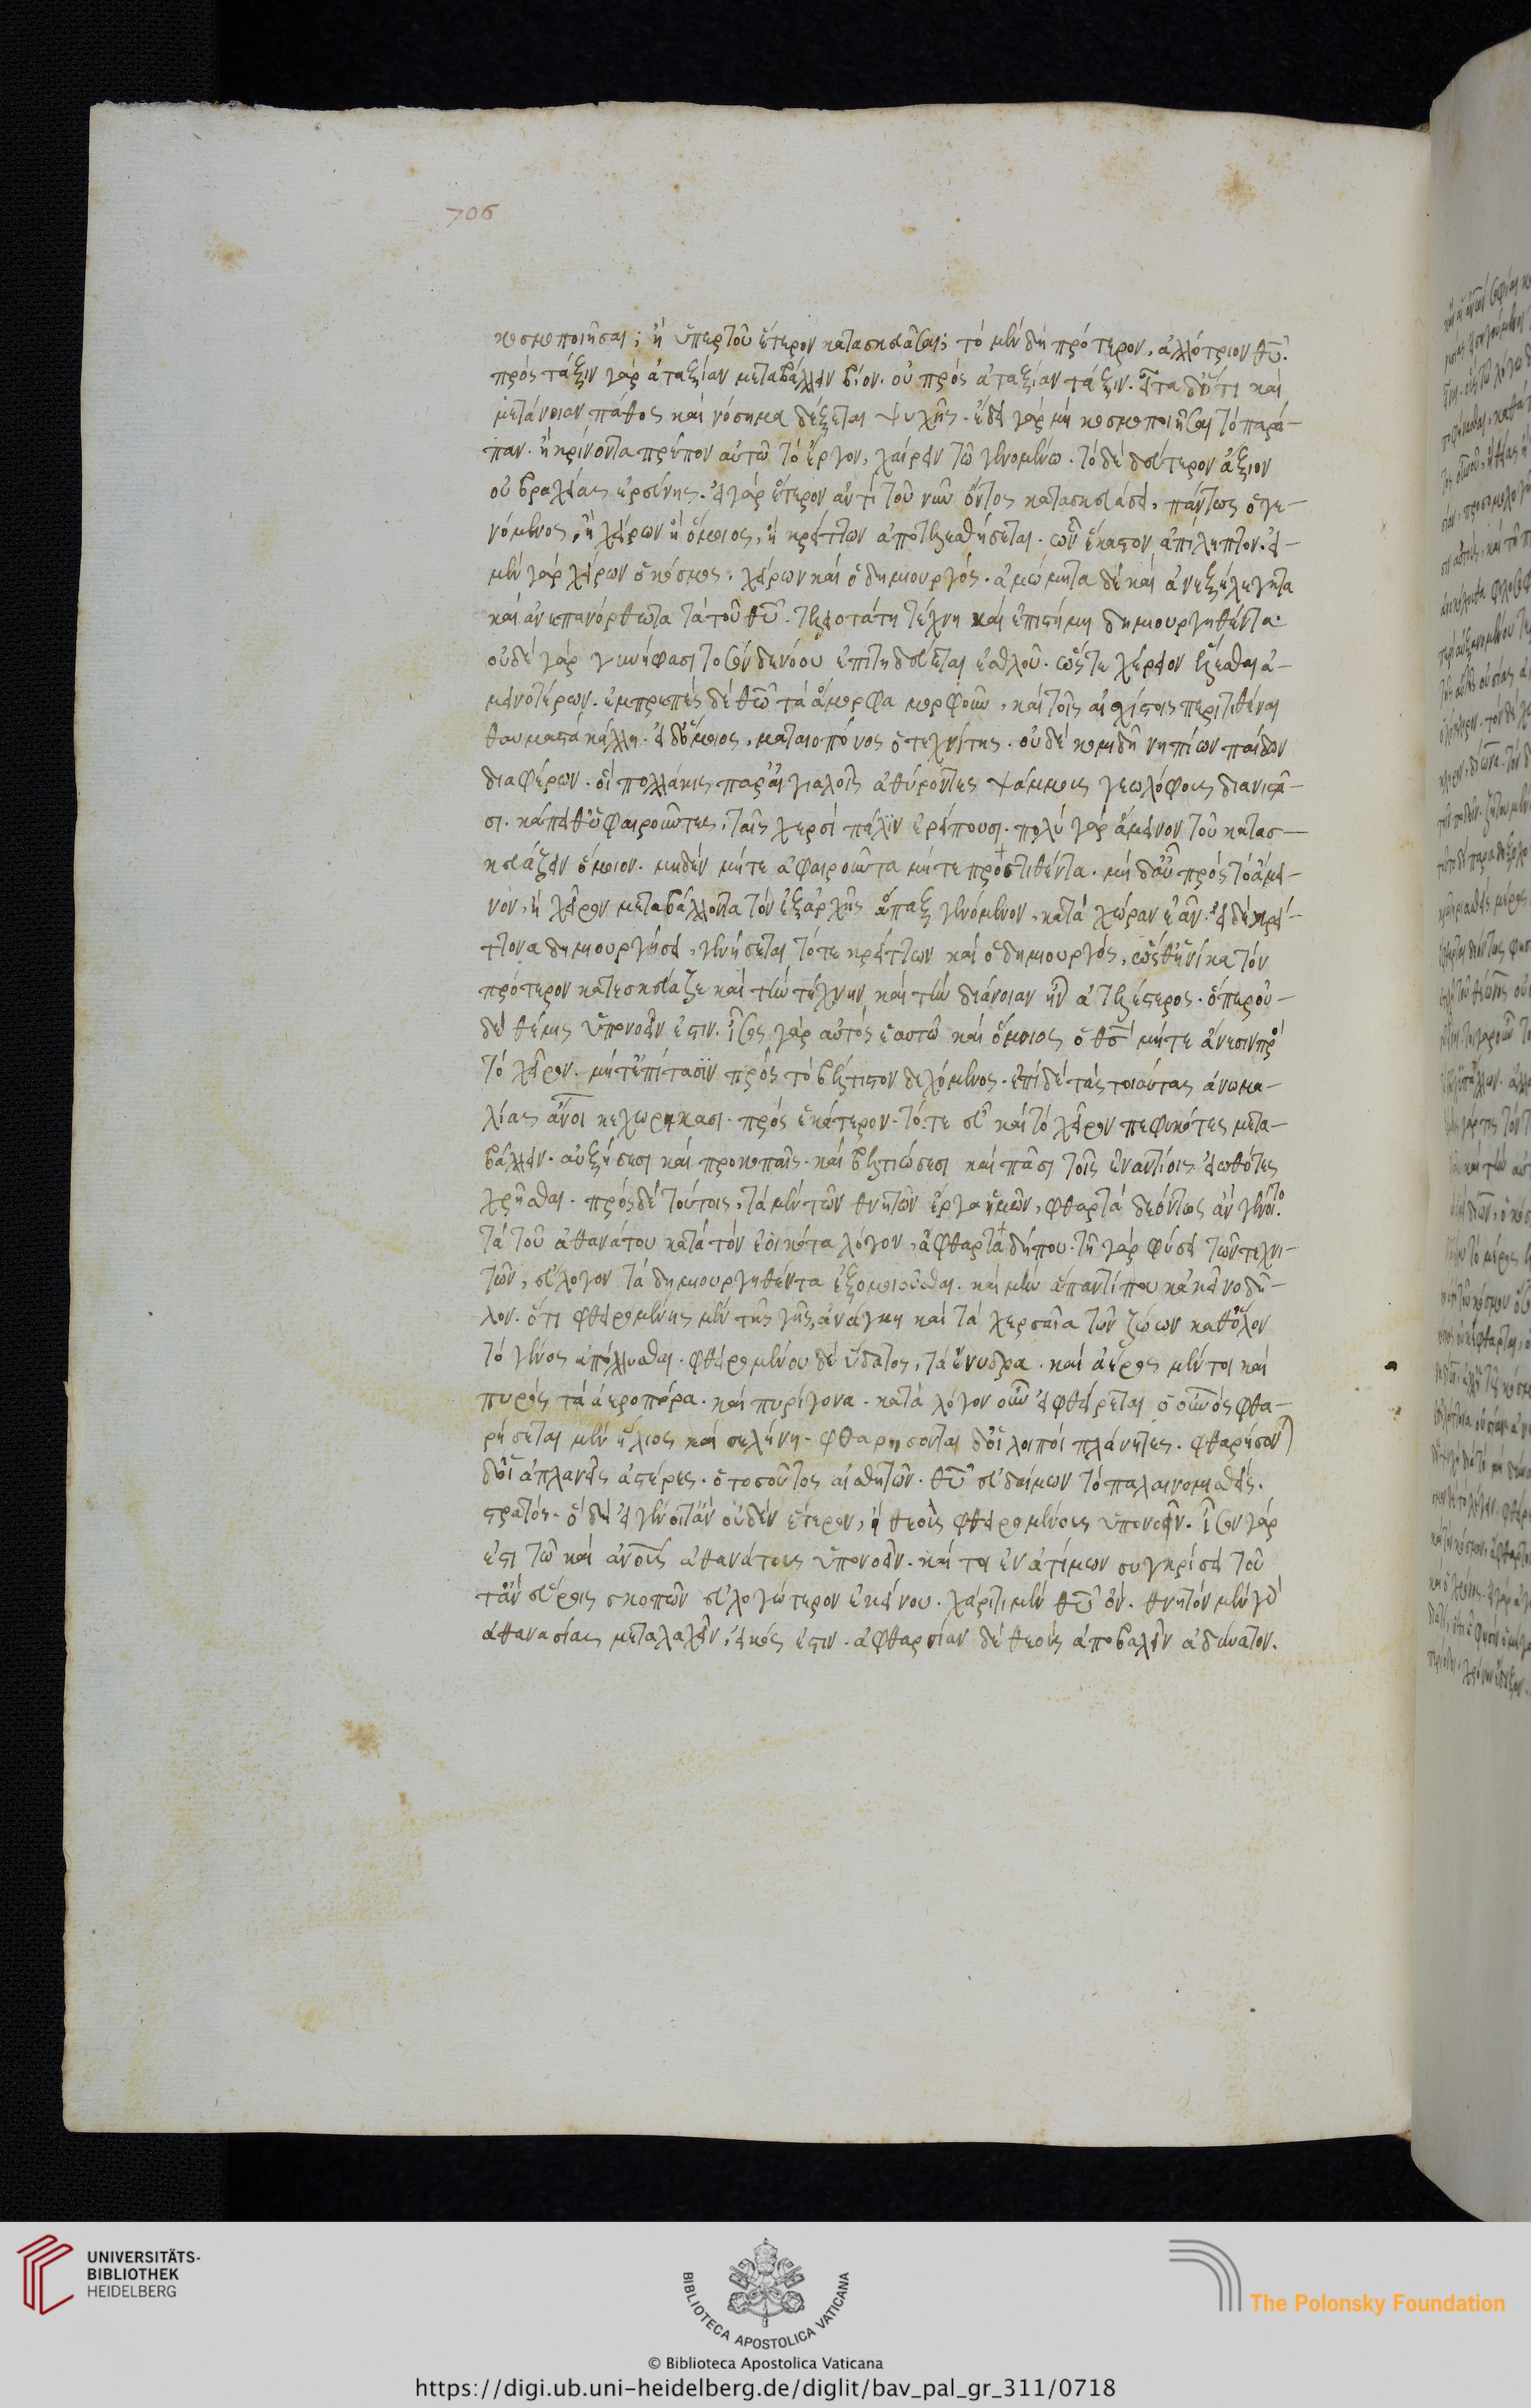 706
κοσμοποιῆσαι; ἢ ὑπερτοῦ ἕτερον κατασκευᾶσαι; τὸ μὲν δὴ πρότερον, ἀλλότριον θῦ.
πρὸς τάξιν γὰρ ἀταξίαν μεταβάλλειν βίον. οὐ πρὸς ἀταξίαν τάξιν. εἶτα δ' ὅτι καὶ
μετάνοιαν πάθος καὶ νόσημα δέξεται ψυχῆς. ἔδει γὰρ μὴ κοσμοποιῆσαι τὸ παρά-
παν. ἢ κρίνοντα πρέπον αὐτῶ τὸ ἔργον, χαίρειν τῶ γενομένω. τὸ δὲ δεύτερον ἄξιον
οὐ βραχείας ἐρεύνης. εἰ γὰρ ἕτερον ἀντὶ τοῦ νῦν ὄντος κατασκευάσει, πάντως ὁ γε-
νόμενος, ἢ χείρων ἢ ὅμοιος, ἢ κρείττων ἀποτελεσθήσεται. ὧν ἕκαστον ἀπίληπτον. εἰ-
μὲν γὰρ χείρων ὁ κόσμος. χείρων καὶ ὁ δημιουργός. ἀμώμητα δὲ καὶ ἀνεξέλεγκτα
καὶ ἀνεπανόρθωτα τὰ τοῦ θῦ. τελειοτάτη τέχνη καὶ ἐπιστήμη δημιουργηθέντα.
οὐδὲ γὰρ γυνή φασι τοσόνδε νόου ἐπιτηδεύεται ἐσθλοῦ. ὥστε χέρειον ἑλέσθαι ἀ-
μεινοτέρων. ἐμπρεπὲς δὲ θῶ τὰ ἄμορφα μορφοῦν, καὶ τοῖς αἰσχίστοις περιτιθέναι
θαυμαστὰ κάλλη. εἰ δ' ὅμοιος, ματαιοπόνος ὁ τεχνίτης. οὐδὲ κομιδῆ νηπίων παίδων
διαφέρων. οἳ πολλάκις παρ' αἰγιαλοῖς ἀθύροντες ψάμμοις γεωλόφους διανιστᾶ-
σι. κάπειθ' ὑφαιροῦντες, ταῖς χερσὶ πάλϊν ἐρείπουσι. πολὺ γὰρ ἄμεινον τοῦ κατασ-
κευάζειν ὅμοιον. μηδὲν μήτε ἀφαιροῦντα μήτε προστιθέντα. μὴ δ' αὖ πρὸς τὸ ἄμει-
νον, ἢ χεῖρον μεταβάλλοντα τὸν ἐξαρχῆς ἅπαξ γενόμενον, κατὰ χώραν ἐᾶν. εἰ δὲ κρεί-
ττονα δημιουργήσει, γενήσεται τότε κρείττων καὶ ὁ δημιουργός, ὥσθ' ἡνίκα τὸν
πρότερον κατεσκεύαζε καὶ τὴν τέχνην καὶ τὴν διάνοιαν ἦν ἀτελέστερος. ὅπερ οὐ-
δὲ θέμις ὑπονοεῖν ἐστιν. ἶσος γὰρ αὐτὸς ἑαυτῶ καὶ ὅμοιος ὁ θς μήτε ἄνεσιν πρὸ
τὸ χεῖρον. μήτ' ἐπίτασϊν πρὸς τὸ βέλτιστον δεχόμενος. ἐπὶ δὲ τὰς τοιαύτας ἀνωμα-
λίας ἄνοι κεχωρήκασι. πρὸς ἑκάτερον. τό τε εὖ καὶ τὸ χεῖρον πεφυκότες μετα-
βάλλειν. αὐξήσεσι καὶ προκοπαῖς. καὶ βελτιώσεσι καὶ πᾶσι τοῖς ἐναντίοις εἰωθότες
χρῆσθαι. πρὸς δὲ τούτοις, τὰ μὲν τῶν θνητῶν ἔργα ἡμῶν, φθαρτὰ δεόντως ἂν γένοιτο.
τὰ τοῦ ἀθανάτου κατὰ τὸν ἐοικότα λόγον, ἄφθαρτα δήπου. τῆ γὰρ φύσει τῶν τεχνι-
τῶν, εὔλογον τὰ δημιουργηθέντα ἐξομοιοῦσθαι. καὶ μὴν ἅπαντί που κἀκεῖνο δῆ-
λον. ὅτι φθειρομένης μὲν τῆς γῆς, ἀνάγκη καὶ τὰ χερσαῖα τῶν ζώων καθ' ὅλον
τὸ γένος ἀπόλλυσθαι. φθειρομένου δὲ ὕδατος, τὰ ἔνυδρα. καὶ ἀέρος μέντοι καὶ
πυρὸς τὰ ἀεροπόρα. καὶ πυρίγονα. κατὰ λόγον οὖν εἰ φθείρεται ὁ οὐνὸς φθα-
ρήσεται μὲν ἥλιος καὶ σελήνη. φθαρήσονται δ' οἱ λοιποὶ πλάνητες. φθαρήσον
δ' οἱ ἀπλανεῖς ἀστέρες. ὁ τοσοῦτος αἰσθητῶν. θῦ εὐδαίμων τὸ παλαι νομισθείς.
στρατός. ὁ δὲ εἰ γένοιτ' ἂν οὐδὲν ἕτερον, ἢ θεοὺς φθειρομένους ὑπονοεῖν. ἶσον γάρ
ἐστι τῶ καὶ ἀνους ἀθανάτους ὑπονοεῖν. καί τοι ἐν ἀτίμων συγκρίσει τοῦ
τ' ἂν εὕροις σκοπῶν εὐλογώτερον ἐκείνου. χάριτι μὲν θῦ ὂν. θνητὸν μὲν γὰρ
ἀθανασίας μεταλαχεῖν, εἰκός ἐστιν. ἀφθαρσίαν δὲ θεοὺς ἀποβαλεῖν ἀδύνατον.
UNIVERSITÄTS-
BIBLIOTHEK
HEIDELBERG
BIBLIOTECA APOSTOLICA VATICANA
© Biblioteca Apostolica Vaticana
The Polonsky Foundation
https://digi.ub.uni-heidelberg.de/diglit/bav_pal_gr_311/0718